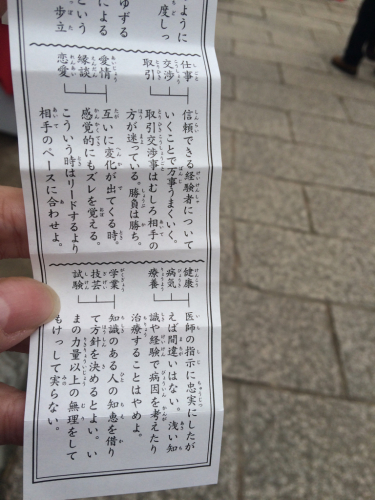 ように
度しっ
ゆずる
による
という
歩立
仕事
交渉
取引
信頼できる経験者について
いくことで万事うまくいく。
取引交渉事はむしろ相手の
方が迷っている。勝負は勝ち。
愛情
縁談
恋愛
互いに変化が出てくる時。
感覚的にもズレを覚える。
こういう時はリードするより
相手のペースに合わせよ。
健康
病気
療養
医師の指示に忠実にしたが
えば間違いはない。浅い知
識や経験で病因を考えたり
治療することはやめよ。
学業
技芸
試験
知識のある人の知恵を借り
て方針を決めるとよい。い
まの力量以上の無理をして
もけっして実らない。